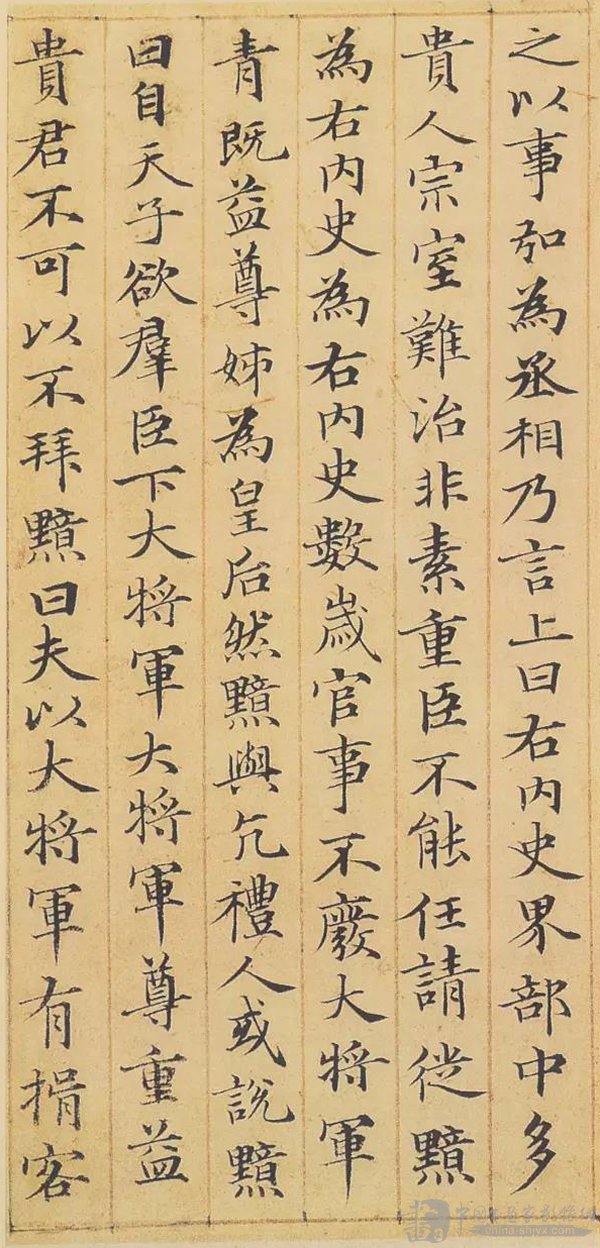 之以事弘為丞相乃言上曰右内史界部中多
貴人宗室難治非素重臣不能任請徙黯
為右内史為右内史數歲官事不廢大將軍
青既益尊姊為皇后然黯與亢禮人或說黯
曰自天子欲羣臣下大將軍大將軍尊重益
貴君不可以不拜黯曰夫以大將軍有揖客